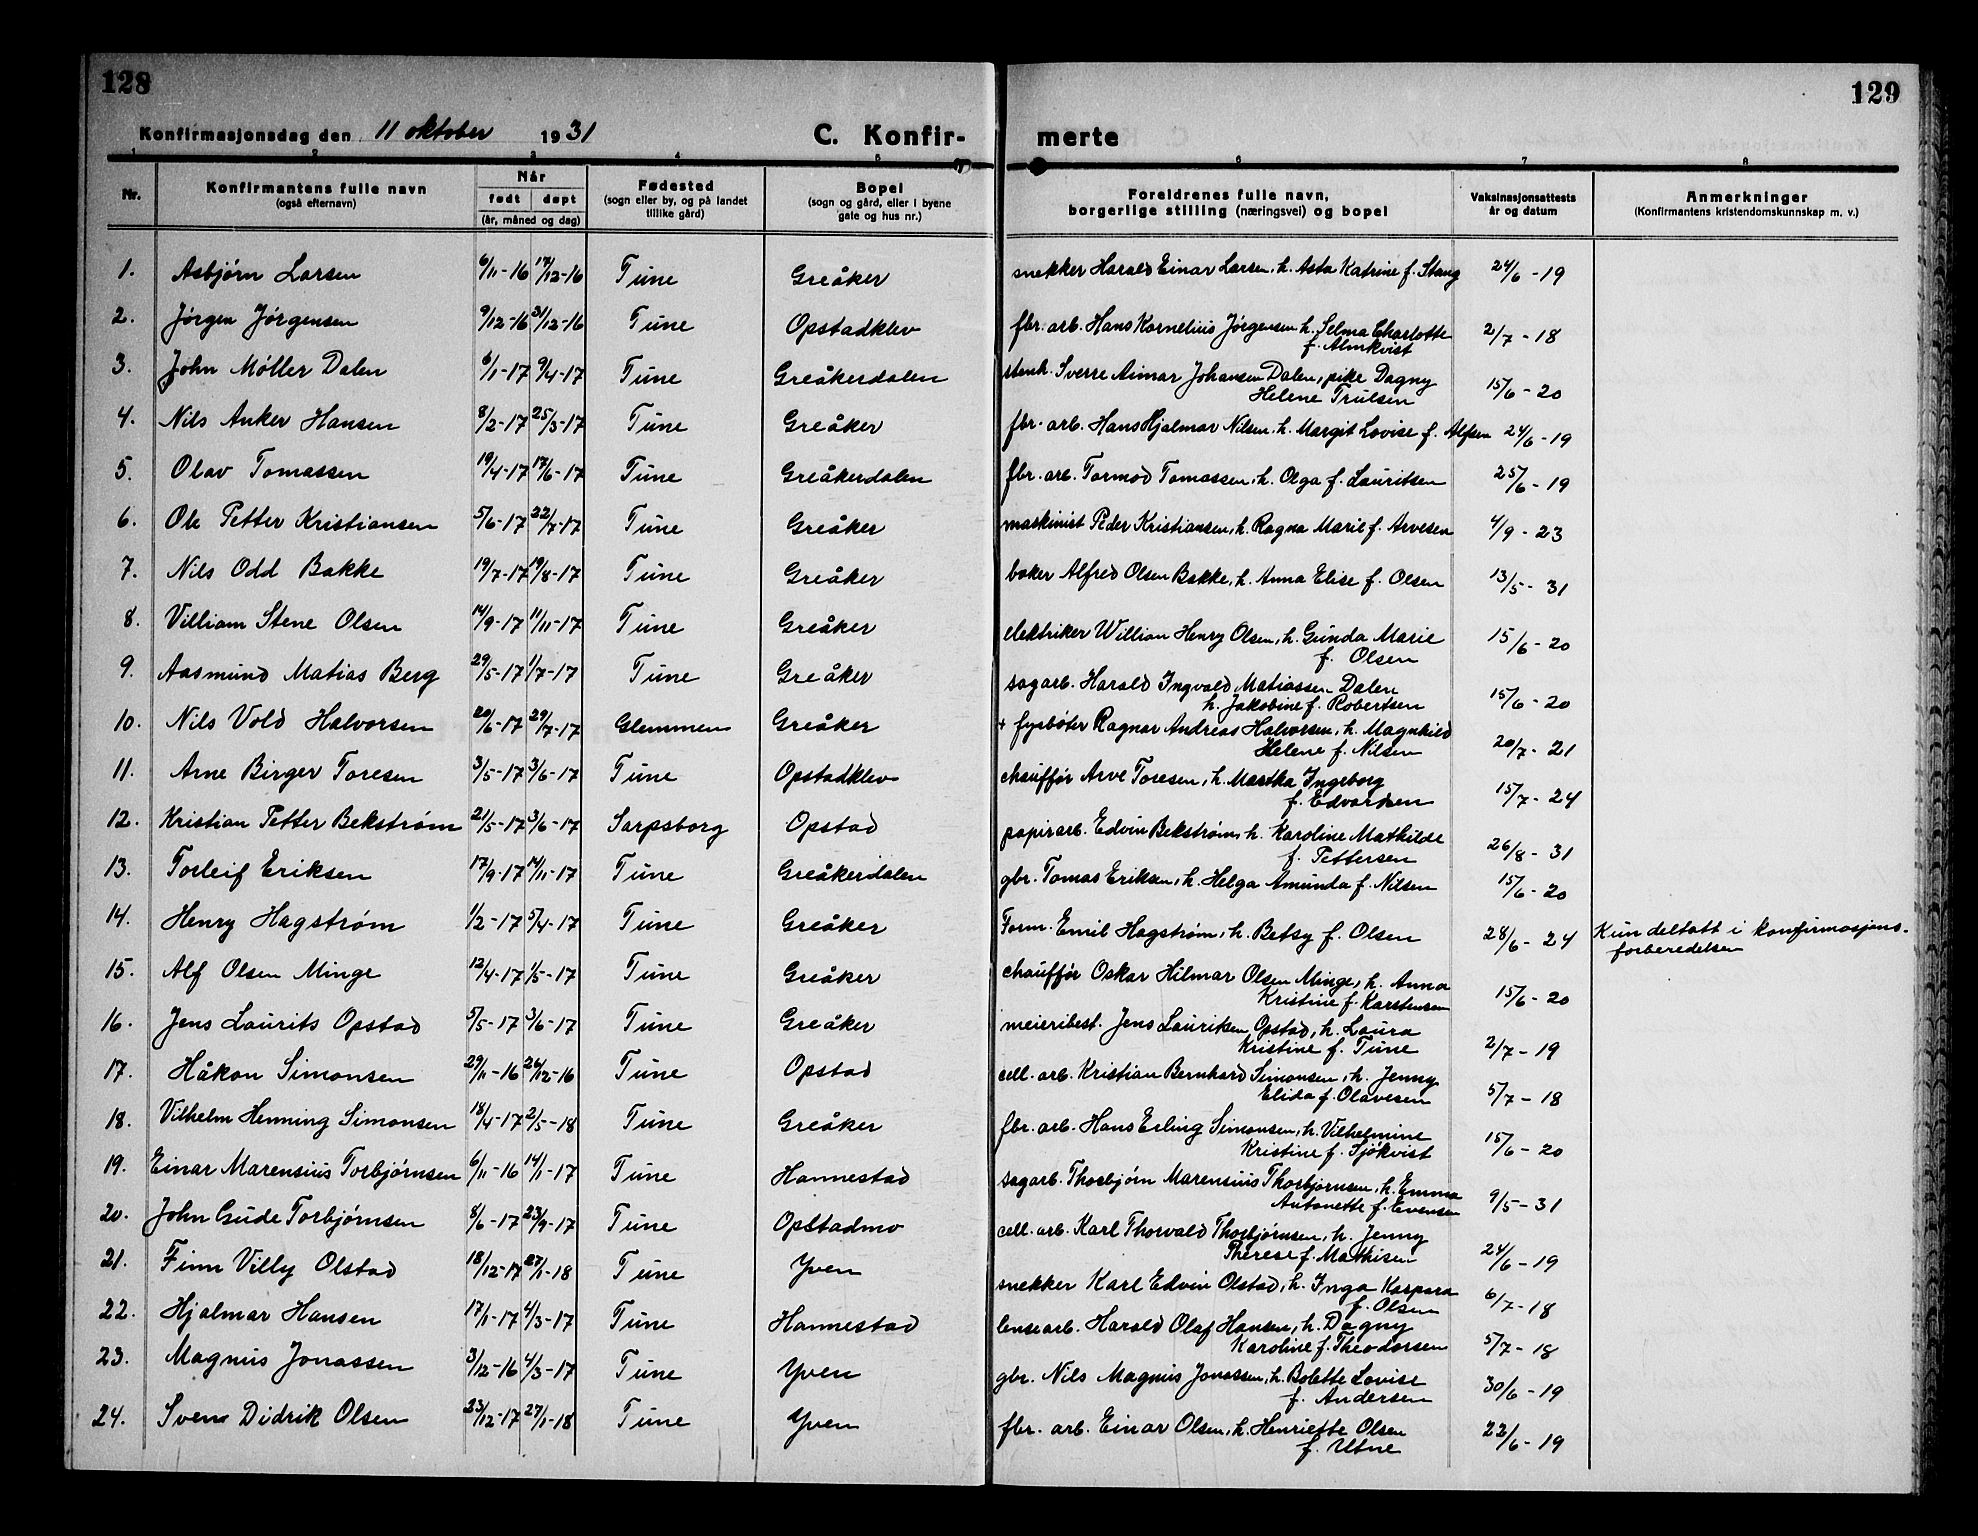 128
129
Konfirmasjonsdag den 11 oktober 1931
C. Konfir-
merte
1 2 3 4 5 6 7 8
Nr. Konfirmantens fulle navn Når Fødested Bopel Foreldrenes fulle navn, Vaksinasjonsattests Anmerkninger
(også efternavn) født døpt (sogn eller by, og på landet (sogn og gård, eller i byene borgerlige stilling (næringsvei) og bopel år og datum (Konfirmantens kristendomskunnskap m. v.)
(år, måned og dag) tillike gård) gate og hus nr.)
1. Asbjørn Larsen 6/11-16 17/12-16 Tune Greåker snekker Harald Einar Larsen, h. Asta Katrine f. Stang 24/6-19
2. Jørgen Jørgensen 9/12-16 31/12-16 Tune Opstadklev fbr. arb. Hans Kornelius Jørgensen h. Selma Charlotte 2/7-18
f. Almkvist
3. John Møller Dalen 6/1-17 9/4-17 Tune Greåkerdalen stenh. Sverre Aimar Johansen Dalen, pike Dagny 15/6-20
Helene Trulsen
4. Nils Anker Hansen 8/2-17 25/3-17 Tune Greåker fbr. arb. Hans Hjalmar Nilsen, h. Margit Lovise f. Alfsen 24/6-19
5. Olav Tomassen 19/4-17 17/6-17 Tune Greåkerdalen fbr. arb. Tormod Tomassen, h. Olga f. Lauritsen 25/6-19
6. Ole Petter Kristiansen 5/6-17 22/7-17 Tune Greåker maskinist Peder Kristiansen, h. Ragna Marie f. Arvesen 4/9-23
7. Nils Odd Bakke 19/7-17 19/8-17 Tune Greåker baker Alfred Olsen Bakke, h. Anna Elise f. Olsen 13/5-31
8. Villiam Stene Olsen 14/9-17 11/11-17 Tune Greåker elektriker Willian Henry Olsen, h. Gunda Marie 15/6-20
f. Olsen
9. Aasmund Matias Berg 29/5-17 1/7-17 Tune Greåker sagarb. Harald Ingvald Matiassen Dalen 15/6-20
h. Jakobine f. Robertsen
10. Nils Vold Halvorsen 20/5-17 29/7-17 Glemmen Greåker + fyrbøter Ragnar Andreas Halvorsen, h. Magnhild 20/7-21
Helene f. Nilsen
11. Arne Birger Toresen 3/5-17 3/6-17 Tune Opstadklev chauffør Arve Toresen, h. Martha Ingeborg 15/7-24
f. Edvardsen
12. Kristian Petter Bekstrøm 21/5-17 3/6-17 Sarpsborg Opstad papirarb. Edvin Bekstrøm, h. Karoline Mathilde 26/8-31
f. Pettersen
13. Torleif Eriksen 17/9-17 14/11-17 Tune Greåkerdalen gbr. Tomas Eriksen, h. Helga Amunda f. Nilsen 15/6-20
14. Henry Hagstrøm 1/2-17 5/4-17 Tune Greåker Form. Emil Hagstrøm, h. Betsy f. Olsen 28/6-24 Kun deltatt i konfirmasjons-
forberedelsen
15. Alf Olsen Minge 12/4-17 1/5-17 Tune Greåker chauffør Oskar Hilmar Olsen Minge, h. Anna 15/6-20
Kristine f. Karstensen
16. Jens Laurits Opstad 5/5-17 3/6-17 Tune Greåker meieribest. Jens Lauritsen Opstad, h. Laura 2/7-19
Kristine f. Tune
17. Håkon Simonsen 29/11-16 26/12-16 Tune Opstad cell. arb. Kristian Bernhard Simonsen, h. Jenny 5/7-18
Elida f. Olavesen
18. Vilhelm Henning Simonsen 18/4-17 2/5-18 Tune Greåker fbr. arb. Hans Erling Simonsen, h. Vilhelmine 15/6-20
Kristine f. Sjøkvist
19. Einar Marensius Torbjørnsen 6/11-16 14/1-17 Tune Hannestad sagarb. Thorbjørn Marensius Thorbjørnsen, h. Emma 9/5-31
Antonette f. Evensen
20. John Gude Torbjørnsen 8/6-17 23/9-17 Tune Opstadmo cell. arb. Karl Thorvald Thorbjørnsen, h. Jenny 24/6-19
Therese f. Mathisen
21. Finn Villy Olstad 18/12-17 27/1-18 Tune Yven snekker Karl Edvin Olstad, h. Inga Kaspara 6/7-18
f. Olsen
22. Hjalmar Hansen 17/1-17 4/3-17 Tune Hannestad lensearb. Harald Olaf Hansen, h. Dagny 5/7-18
Karoline f. Theodorsen
23. Magnus Jonassen 3/12-16 4/3-17 Tune Yven gbr. Nils Magnus Jonassen, h. Bolette Lovise 30/6-19
f. Andersen
24. Svend Didrik Olsen 23/12-17 27/1-18 Tune Yven fbr. arb. Einar Olsen, h. Henriette Olsen 22/6-19
f. Utne